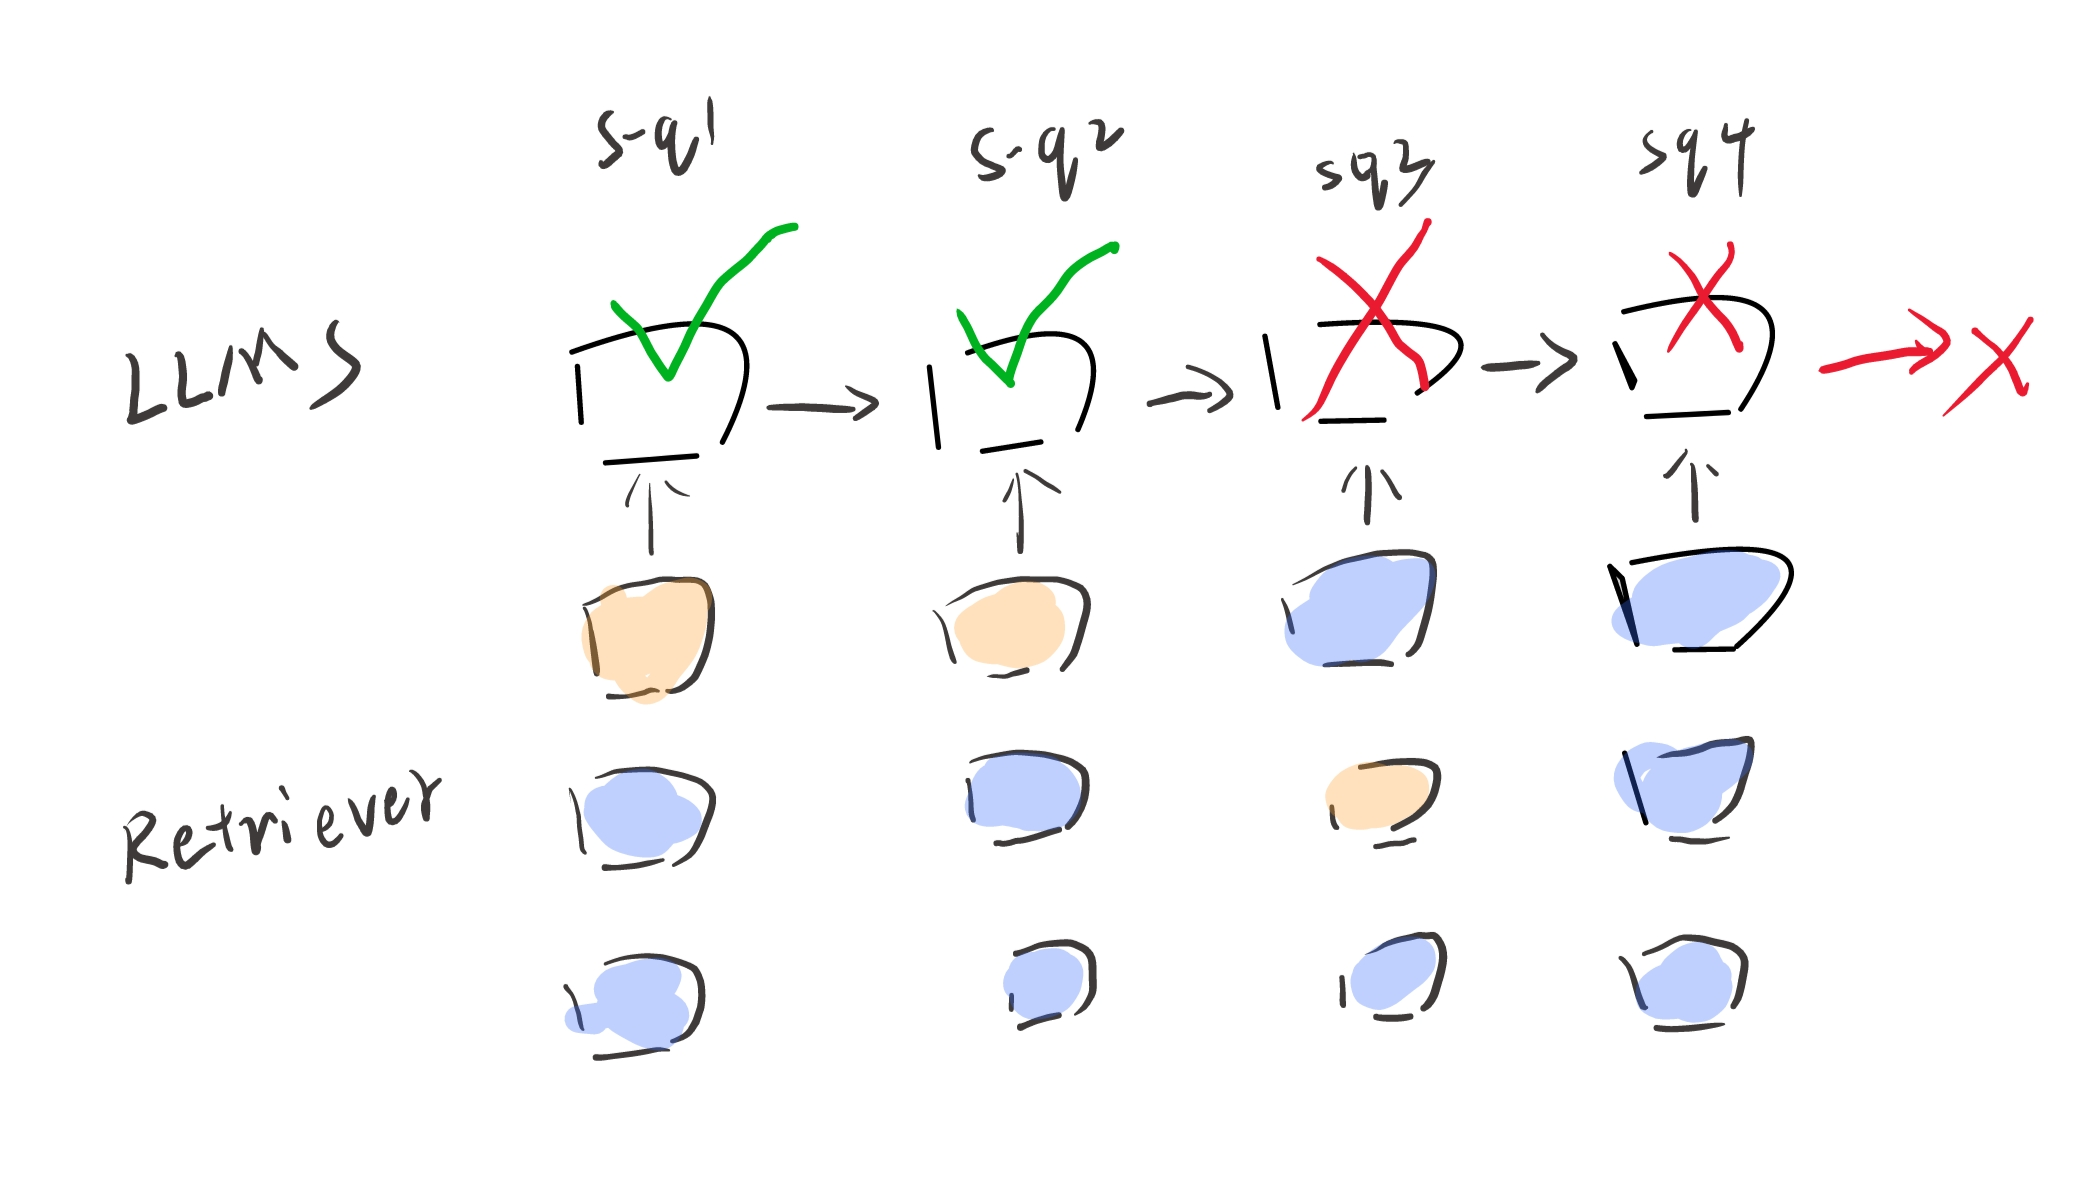 s-q1 s-q2 sq3 sq4
LLMs
Retriever